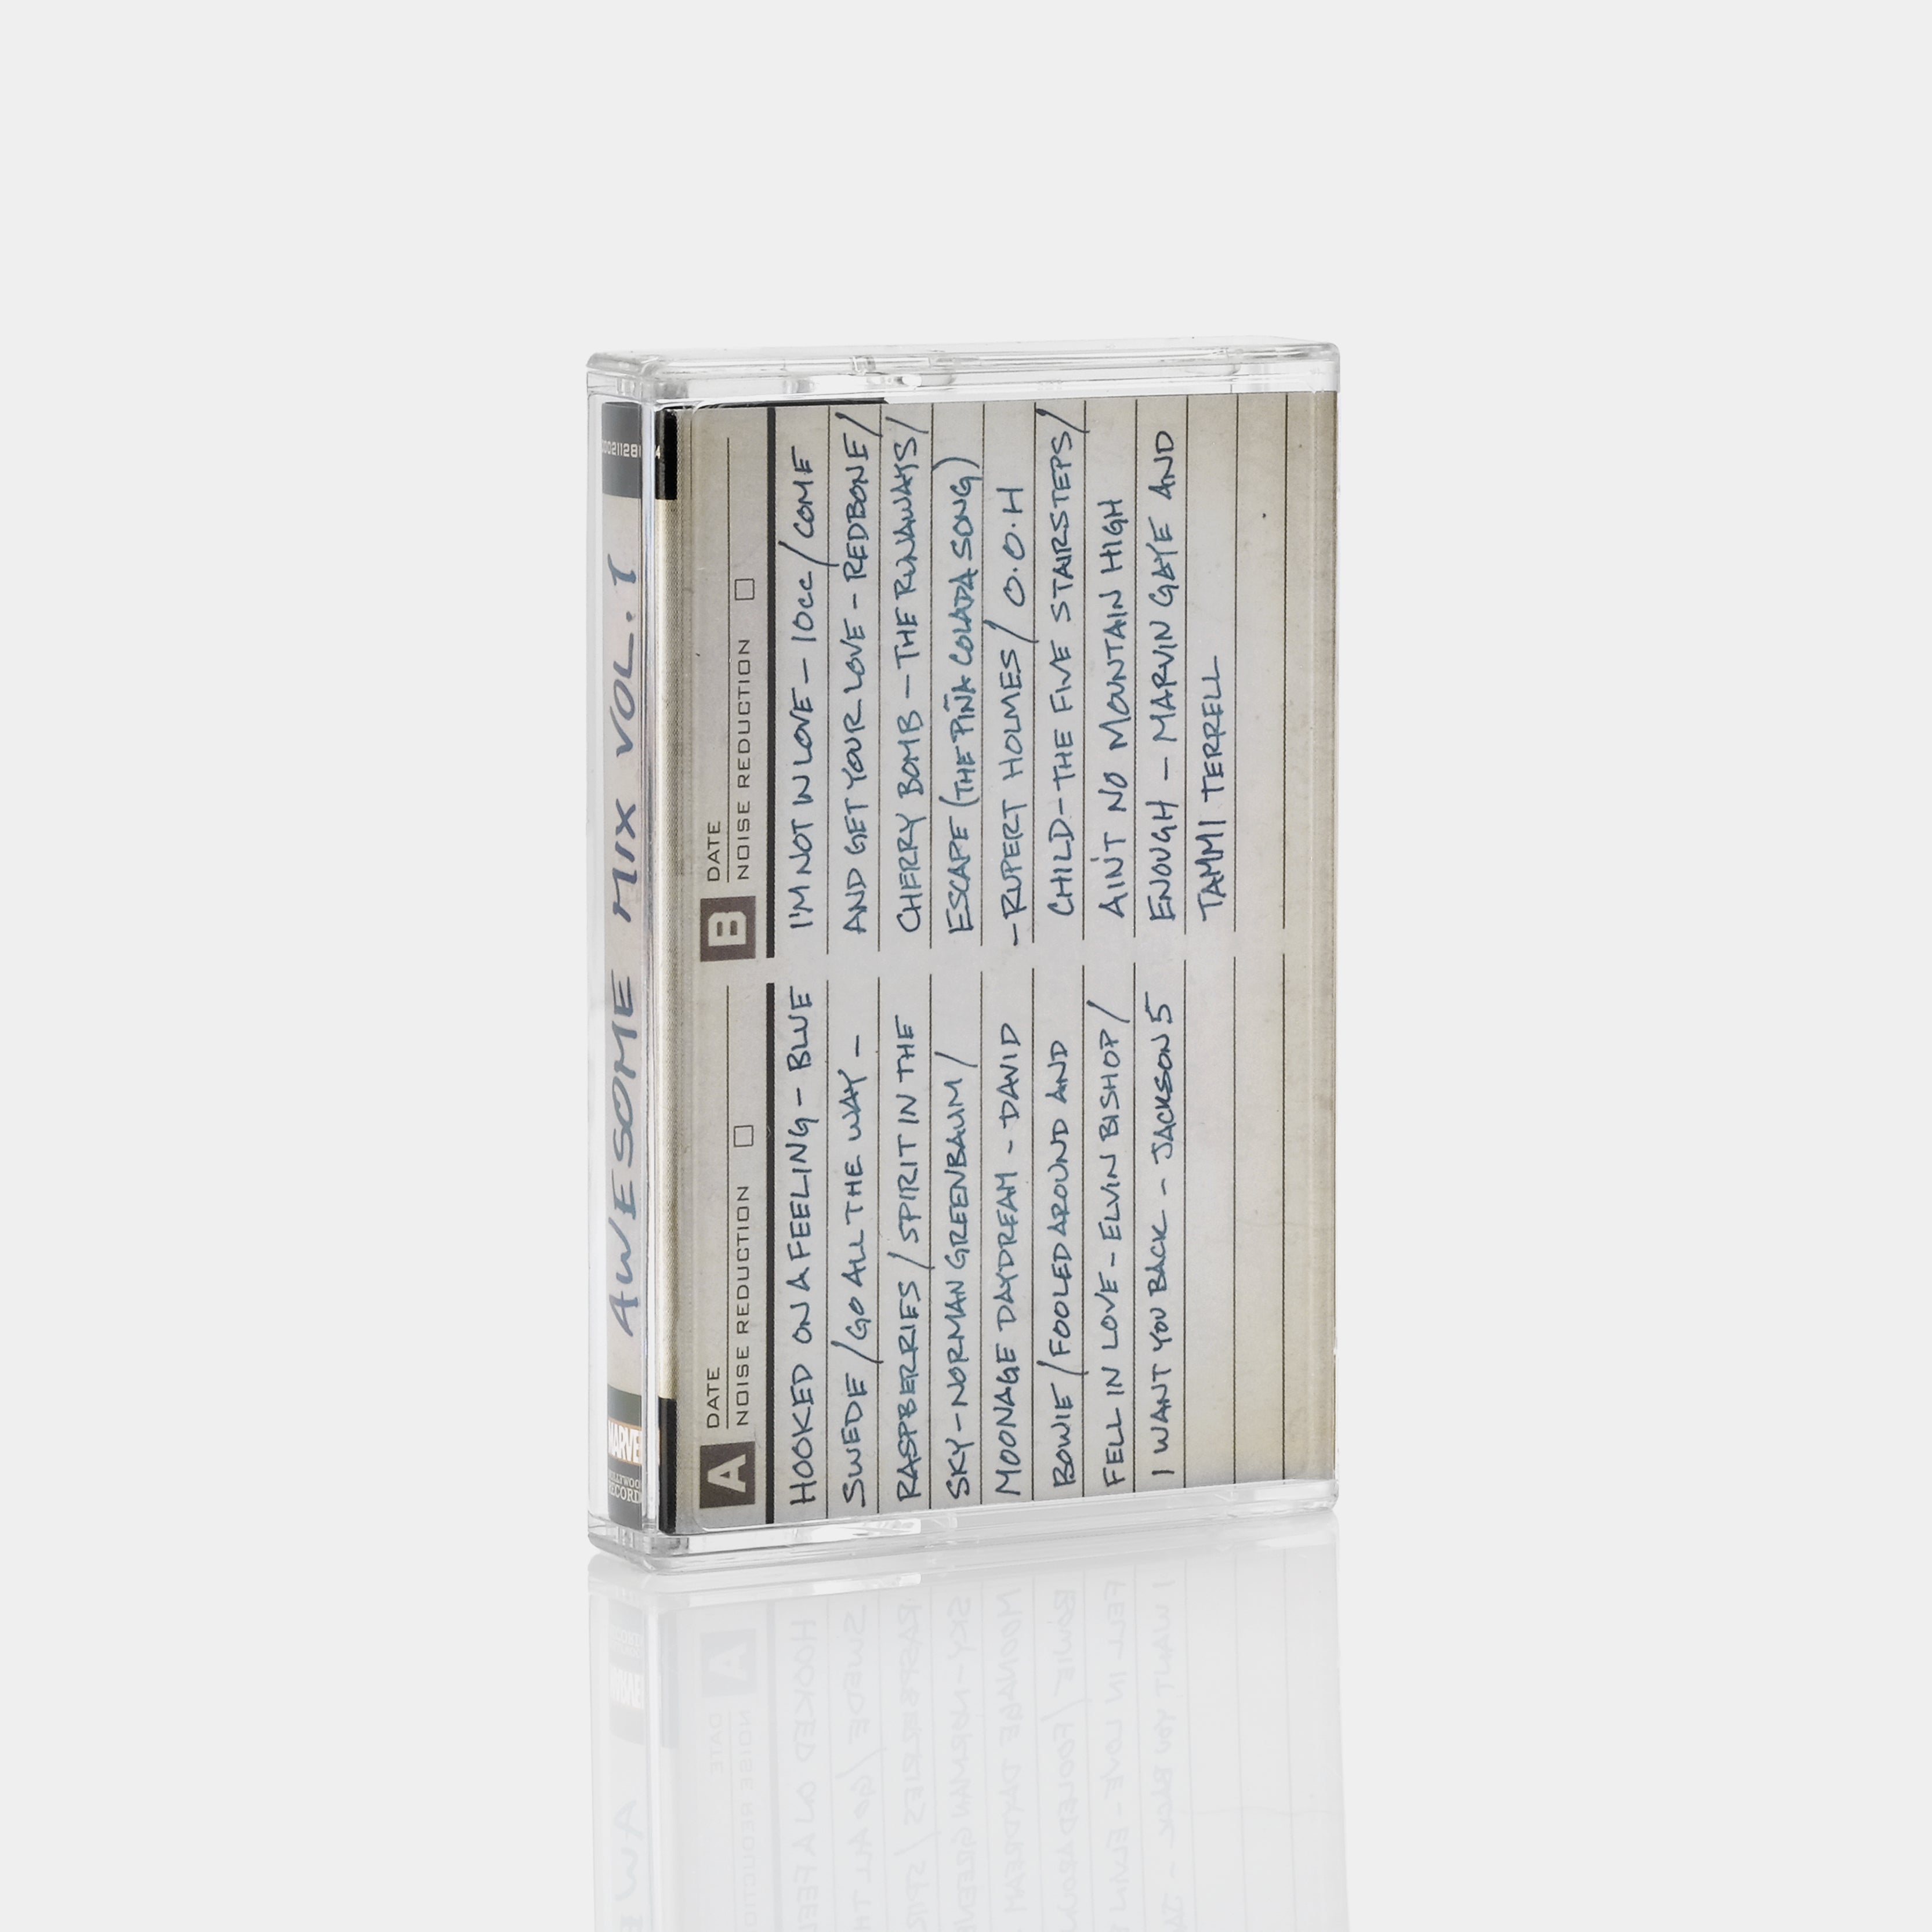 AWESOME MIX VOL. 1
MARVEL
HOLLYWOOD
RECORDS
A
DATE
NOISE REDUCTION
HOOKED ON A FEELING - BLUE
SWEDE / GO ALL THE WAY -
RASPBERRIES / SPIRIT IN THE
SKY - NORMAN GREENBAUM /
MOONAGE DAYDREAM - DAVID
BOWIE / FOOLED AROUND AND
FELL IN LOVE - ELVIN BISHOP /
I WANT YOU BACK - JACKSON 5
B
DATE
NOISE REDUCTION
I'M NOT IN LOVE - 10CC / COME
AND GET YOUR LOVE - REDBONE /
CHERRY BOMB - THE RUNAWAYS /
ESCAPE (THE PIÑA COLADA SONG)
- RUPERT HOLMES / O.O.H
CHILD - THE FIVE STAIRSTEPS /
AIN'T NO MOUNTAIN HIGH
ENOUGH - MARVIN GAYE AND
TAMMI TERRELL